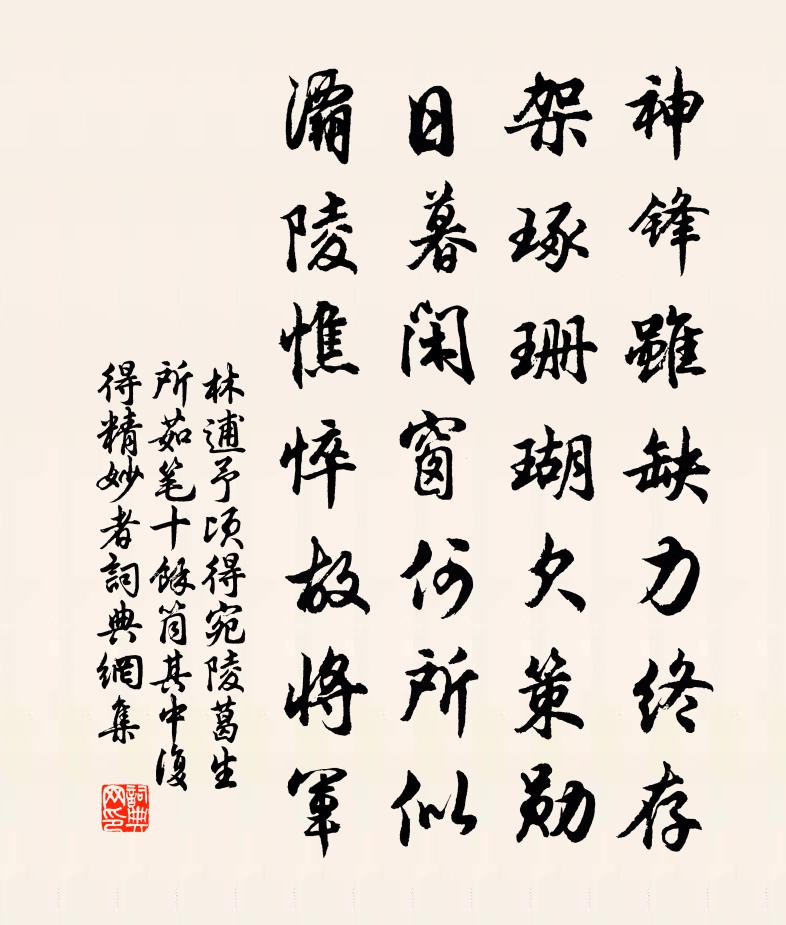 神锋雖缺力终存
架琢珊瑚欠策勋
日暮闲窗何所似
灞陵憔悴故将軍
林逋予顷得宛陵葛生
所茹笔十餘筒其中復
得精妙者詞典網集
詞典网印